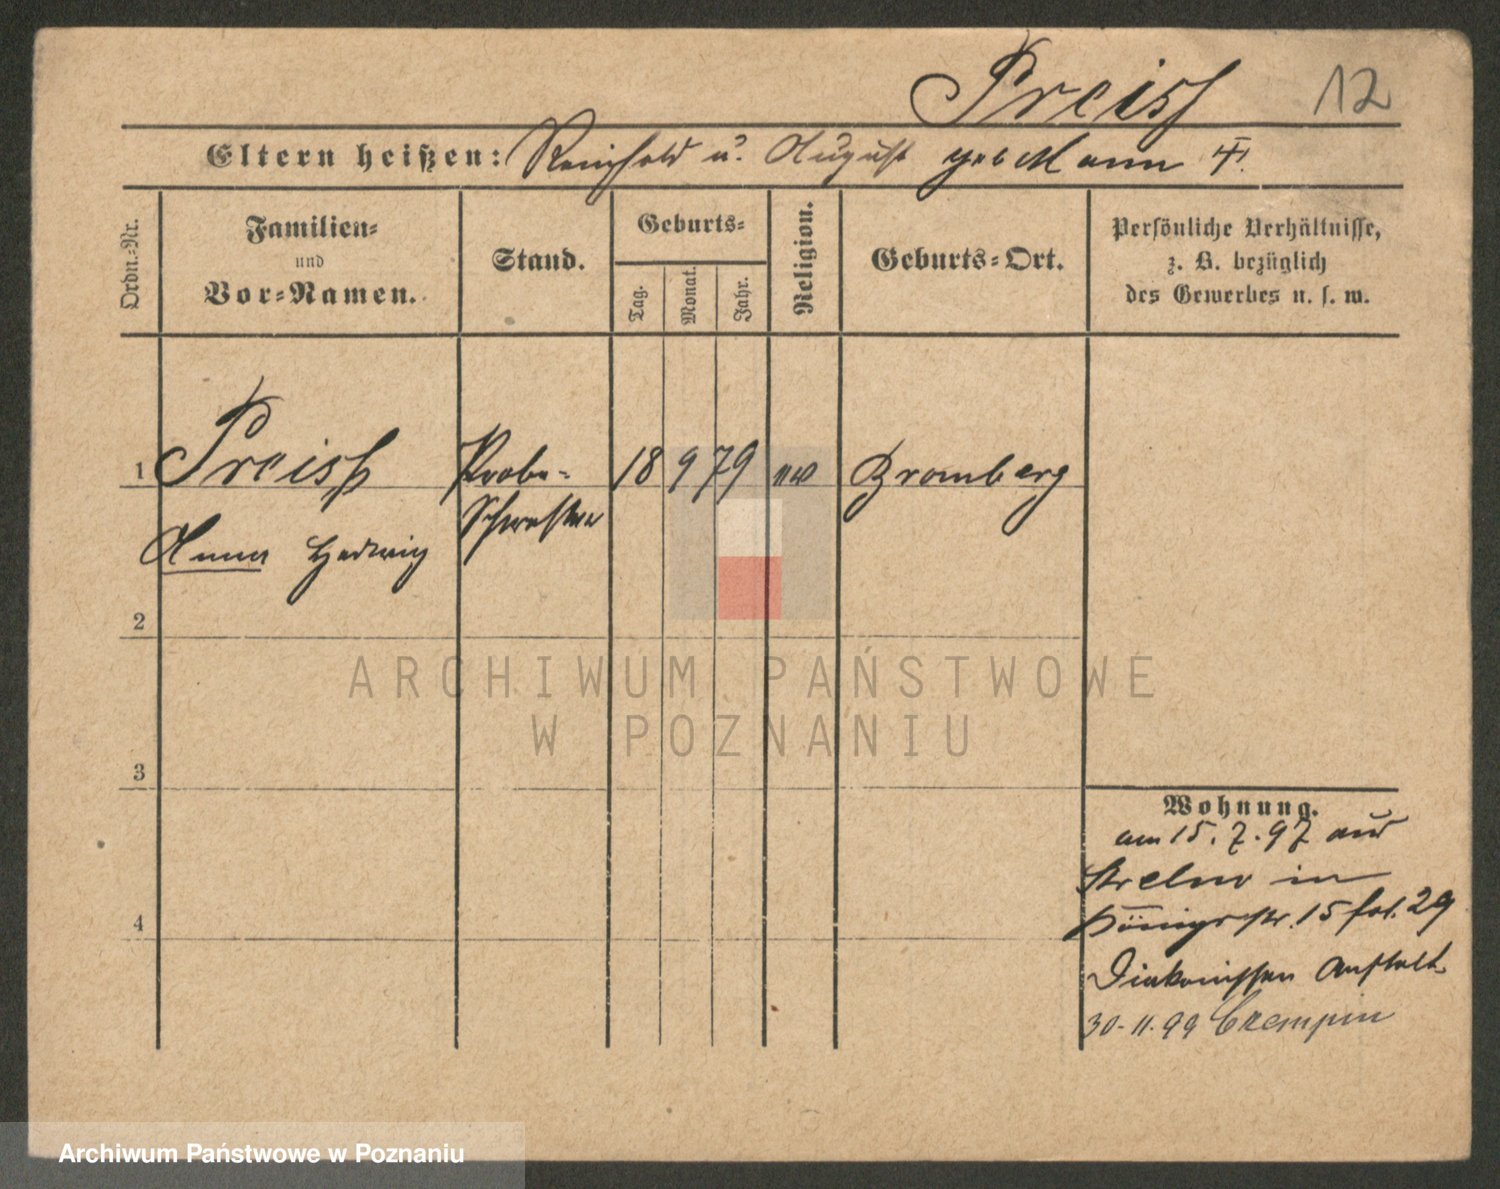 Preiss 12
Eltern heißen: Reinhold u. August geb Mann
Ordn.-Nr.
Familien-
und
Vor-Namen.
Stand.
Geburts-
Tag.
Monat.
Jahr.
Religion.
Geburts-Ort.
Persönliche Verhältnisse,
z. B. bezüglich
des Gewerbes u. s. w.
1 Preiss Probe- 18 9 79 Bromberg
Anna Hedwig Schwester
2
3
4
Wohnung.
am 15. 7. 97 aus
Strelno in
Königsstr. 15 fol. 29
Diakonissen Anstalt
30-11.99 Czempin
ARCHIWUM PAŃSTWOWE
W POZNANIU
Archiwum Państwowe w Poznaniu